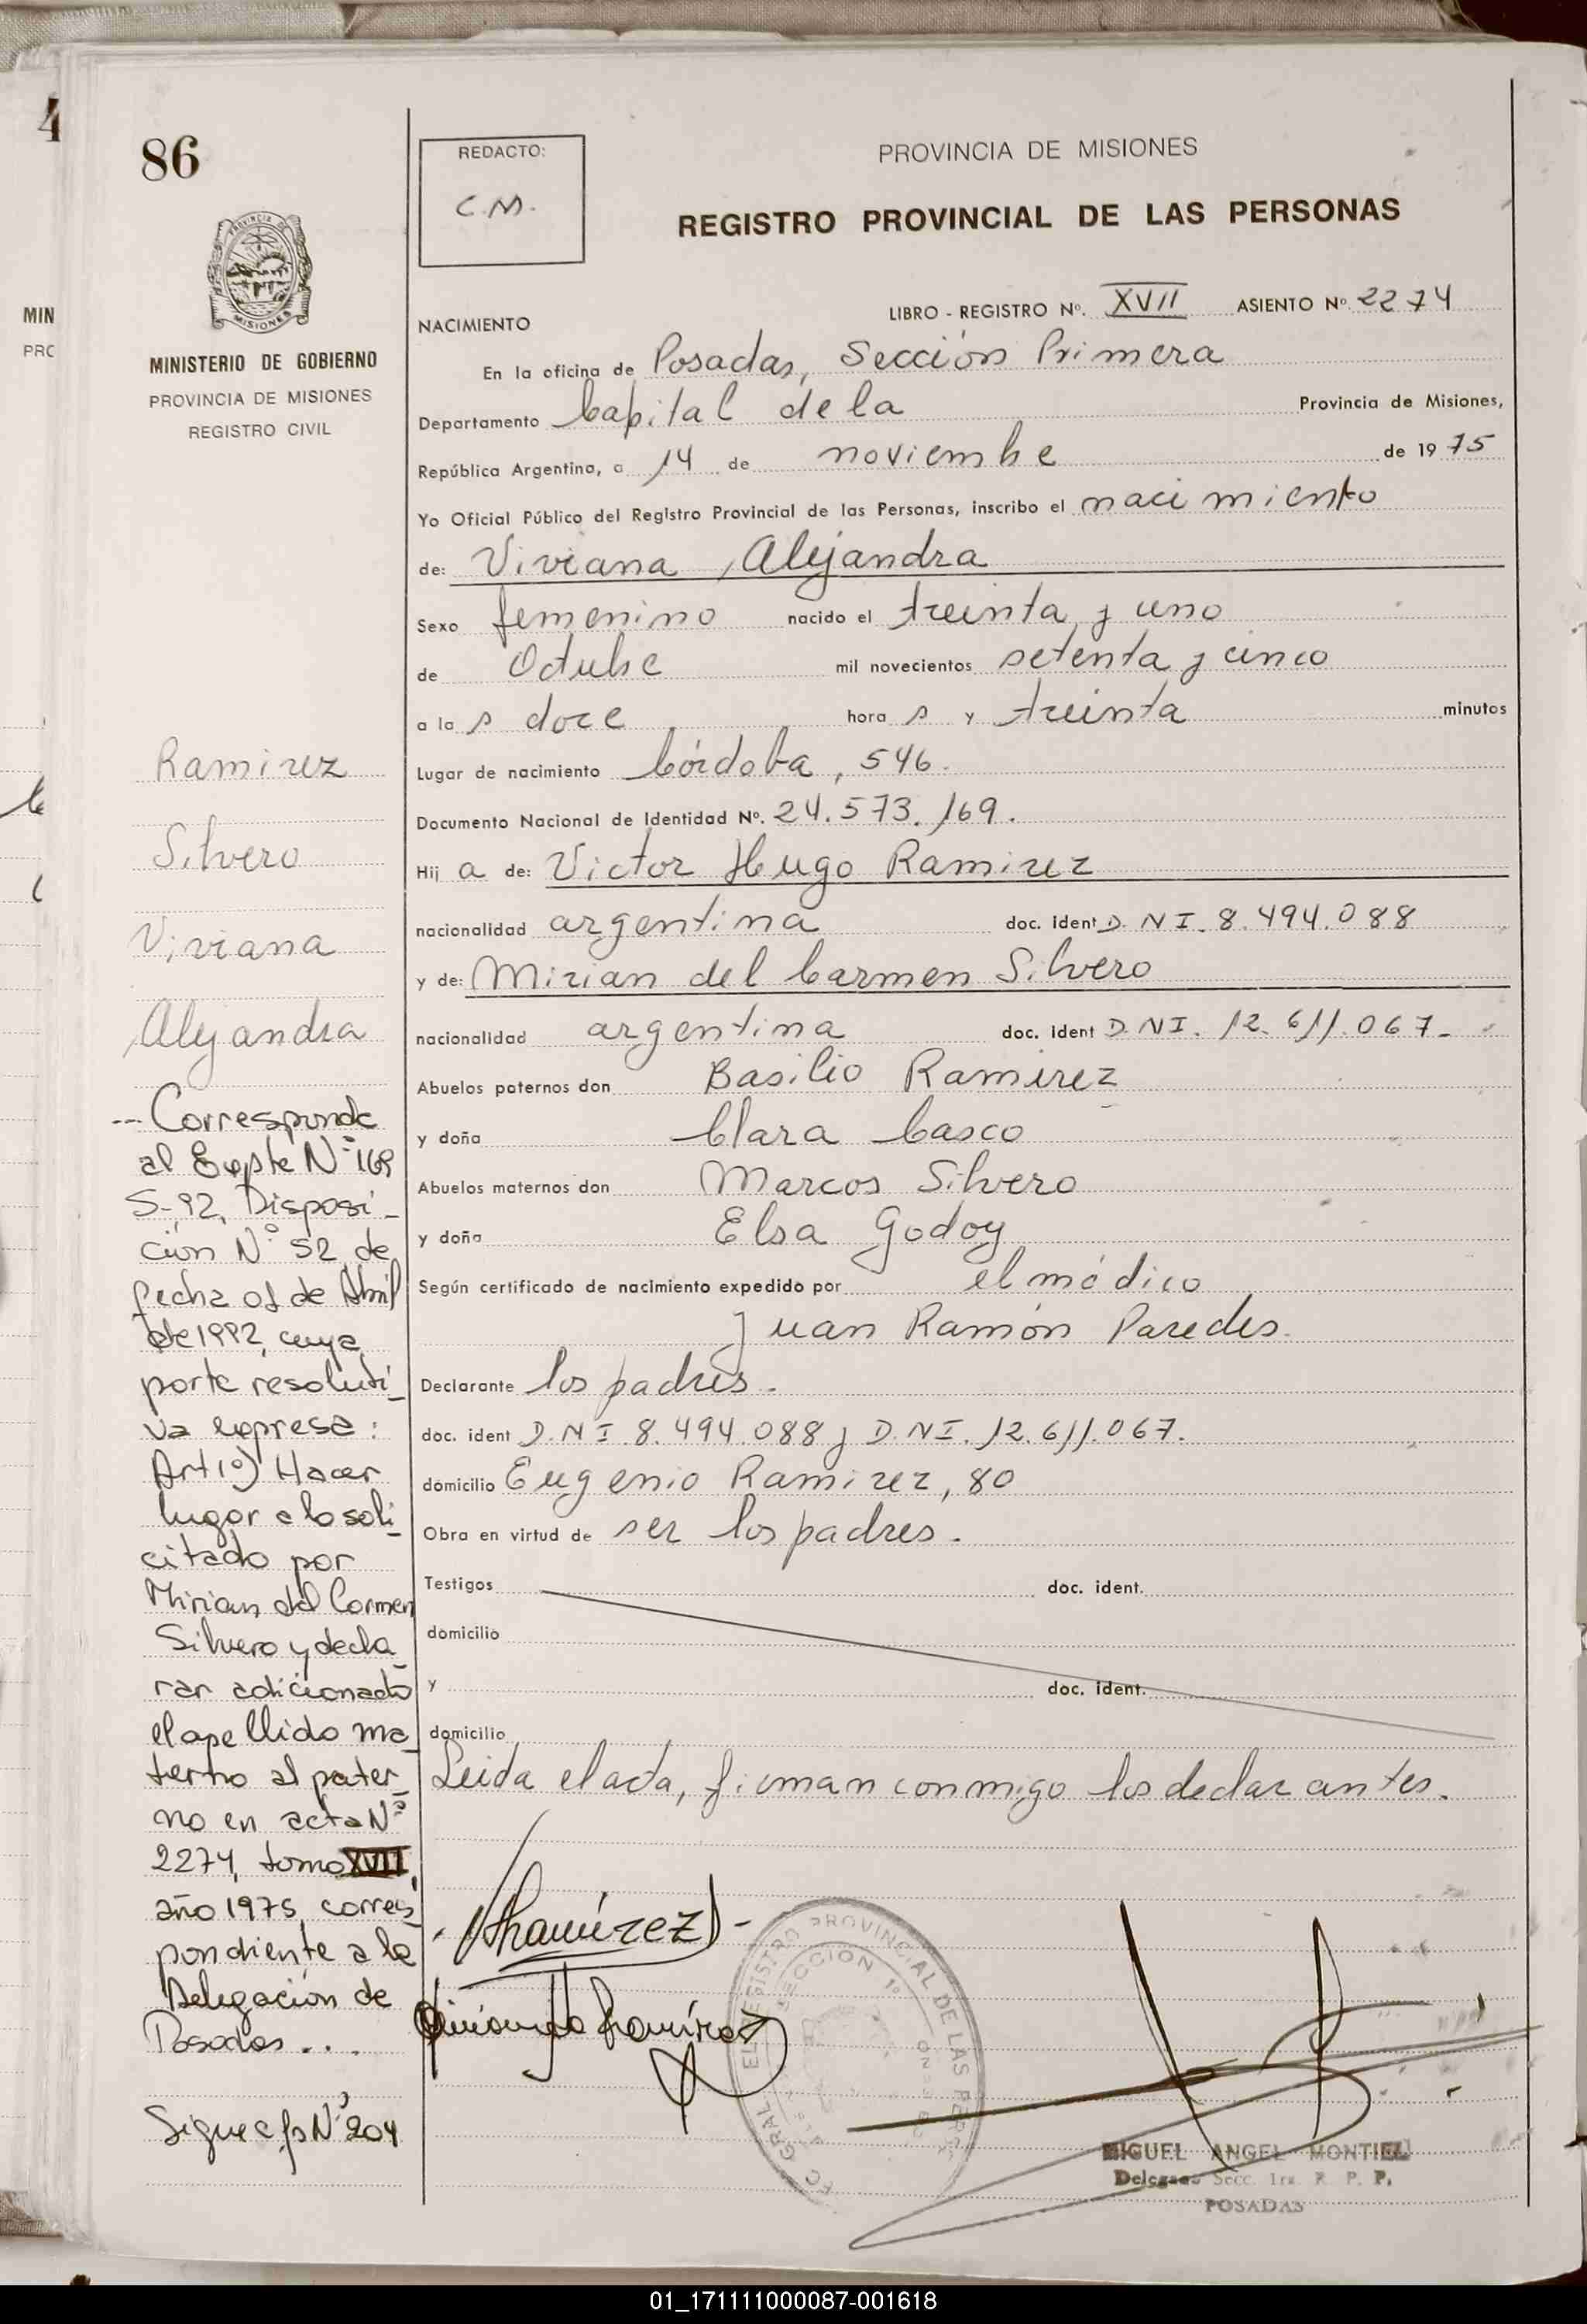 86
MINISTERIO DE GOBIERNO
PROVINCIA DE MISIONES
REGISTRO CIVIL
Ramirez
Silvero
Viviana
Alejandra
-- Corresponde
al Expte Nº 169
S-92, Disposi-
ción Nº 52 de
fecha 01 de Abril
de 1992, cuya
parte resoluti-
va expresa:
Art 1º) Hacer
lugar a lo soli-
citado por
Mirian del Carmen
Silvero y decla-
rar adicionado
el apellido ma-
terno al pater-
no en acta Nº
2274, tomo XVII,
año 1975, corres-
pondiente a la
Delegación de
Posadas...
Sigue fº Nº 204
REDACTO:
C.M.
PROVINCIA DE MISIONES
REGISTRO PROVINCIAL DE LAS PERSONAS
LIBRO - REGISTRO Nº. XVII ASIENTO Nº 2274
NACIMIENTO
En la oficina de Posadas, Sección Primera
Departamento Capital de la Provincia de Misiones,
República Argentina, a 14 de noviembre de 1975
Yo Oficial Público del Registro Provincial de las Personas, inscribo el nacimiento
de: Viviana Alejandra
Sexo femenino nacido el treinta y uno
de Octubre mil novecientos setenta y cinco
a la s doce hora s y treinta minutos
Lugar de nacimiento Córdoba, 546.
Documento Nacional de Identidad Nº. 24.573.169.
Hij a de: Victor Hugo Ramirez
nacionalidad argentina doc. ident D.N.I. 8.494.088
y de: Mirian del Carmen Silvero
nacionalidad argentina doc. ident D.N.I. 12.611.067.-
Abuelos paternos don Basilio Ramirez
y doña Clara Casco
Abuelos maternos don Marcos Silvero
y doña Elsa Godoy
Según certificado de nacimiento expedido por el médico
Juan Ramón Paredes.
Declarante los padres.
doc. ident D.N.I 8.494.088 y D.N.I. 12.611.067.
domicilio Eugenio Ramirez, 80
Obra en virtud de ser los padres.
Testigos doc. ident.
domicilio
y doc. ident.
domicilio
Leida el acta, firman conmigo los declarantes.
VHRamírez
REGISTRO PROVINCIAL DE LAS PERS
SECCION 1º
MIGUEL ANGEL MONTIEL
Delegado Secc. 1ra. R. P. P.
POSADAS
MIN
PRO
01_171111000087-001618